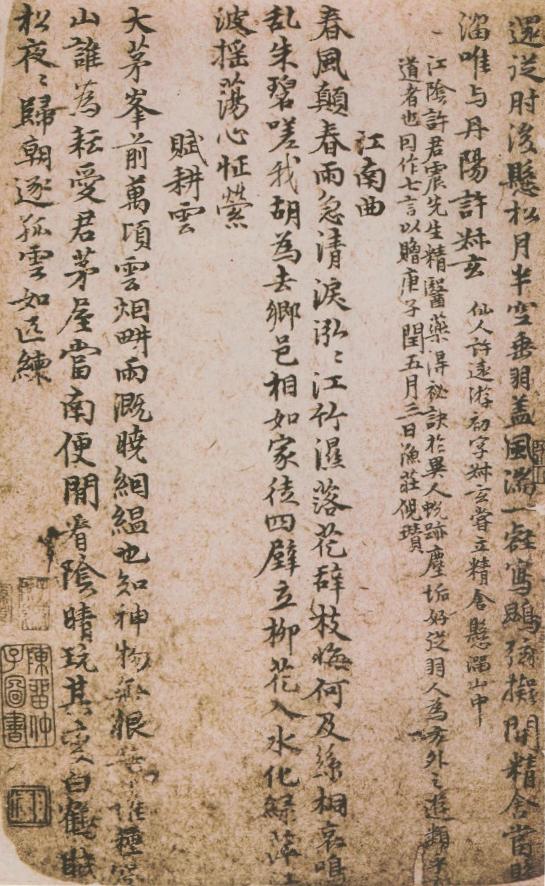 還從肘後懸松月半空垂羽蓋風湍一壑寫鵾弦擬開精舍當
溜唯与丹陽許𤕤玄 仙人許遠游初字𤕤玄嘗立精舍懸溜山中
江陰許君震先生精醫藥得祕訣於異人蛻跡塵垢好從羽人為方外之遊類
道者也因作七言以贈庚子閏五月三日漁莊倪瓚
江南曲
春風顛春雨急清淚泓〻江竹濕落花辭枝悔何及絲桐哀鳴
乱朱碧嗟我胡為去鄉邑相如家徒四壁立柳花入水化綠萍
波搖蕩心怔營
賦耕雲
大茅峯前萬頃雲烟畊雨溉曉絪縕也知神物無根
山誰為耘愛君茅屋當南便閒看陰晴玩其變白鶴
松夜〻歸朝逐孤雲如匹練
陳留仲子啚書